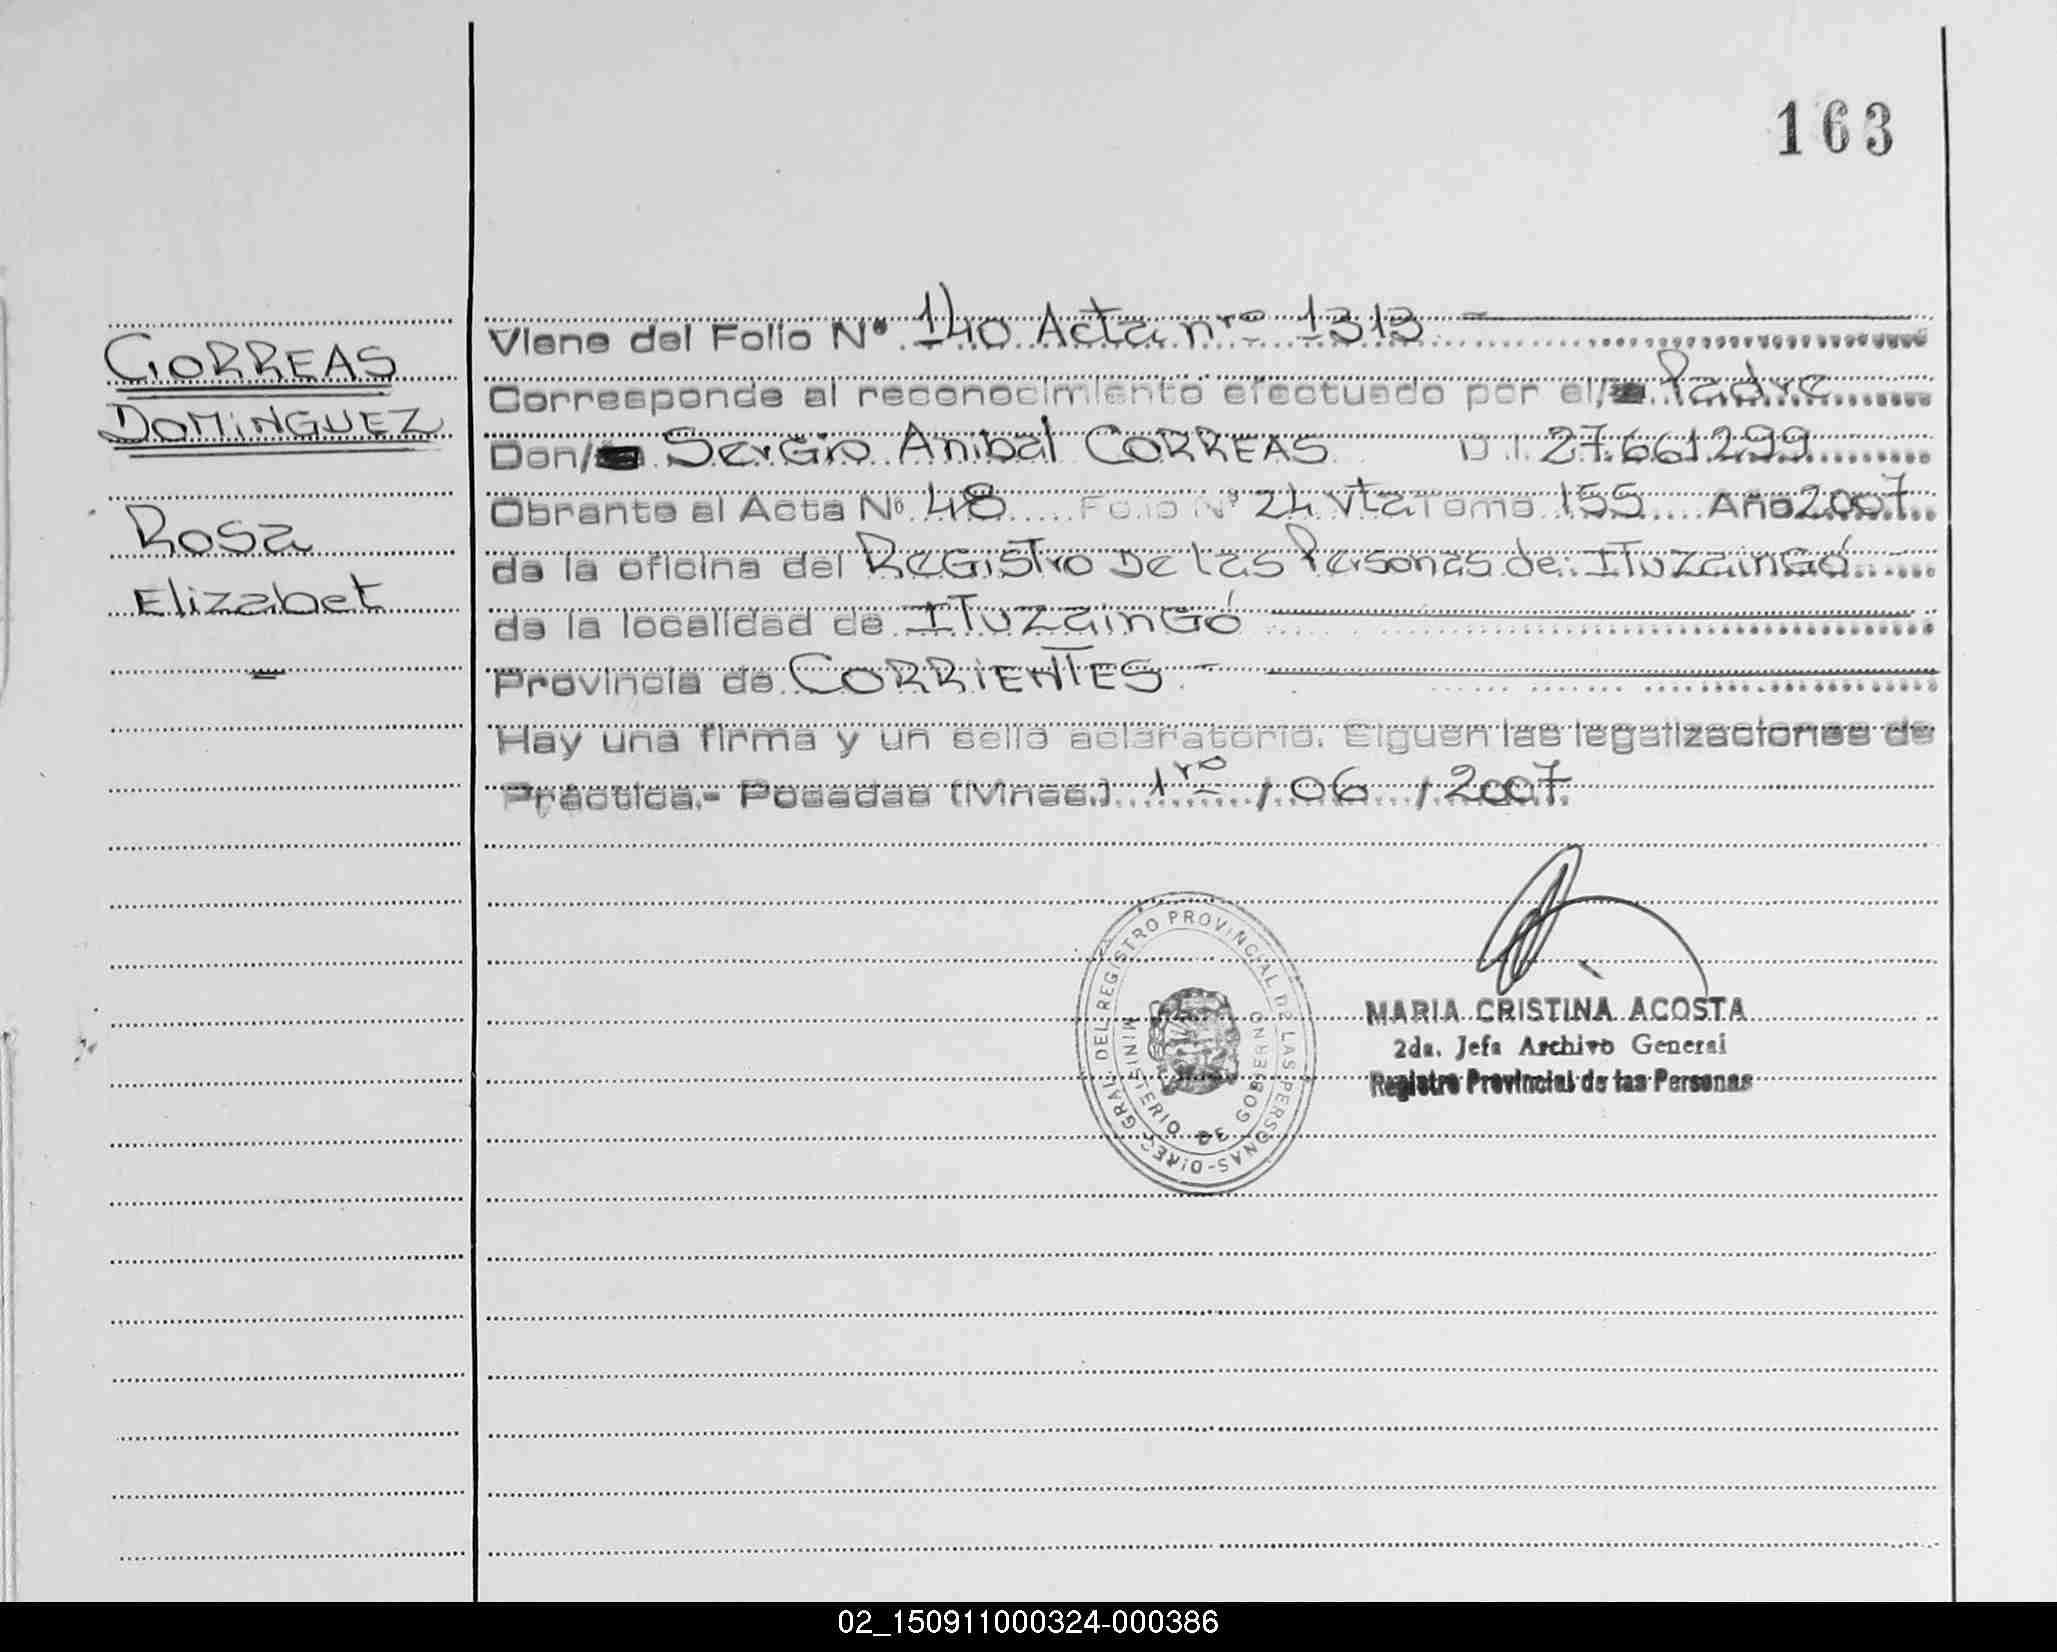 163
CORREAS
DOMINGUEZ
Rosa
Elizabet
Viene del Folio Nº 140 Acta nro 1313
Corresponde al reconocimiento efectuado por el/ Padre
Don/ Sergio Anibal CORREAS D.I. 27.661.299
Obrante al Acta Nº 48 Folio Nº 24 vta Tomo 155 Año 2007
de la oficina del Registro De las Personas de: ITuzaingó
de la localidad de ITuzaingó
Provincia de CORRIENTES
Hay una firma y un sello aclaratorio. Siguen las legalizaciones de
Práctica.- Posadas (Mnes.) 1ro / 06 / 2007
DIREC. GRAL. DEL REGISTRO PROVINCIAL DE LAS PERSONAS-
MINISTERIO DE GOBIERNO
MARIA CRISTINA ACOSTA
2da. Jefa Archivo General
Registro Provincial de las Personas
02_150911000324-000386